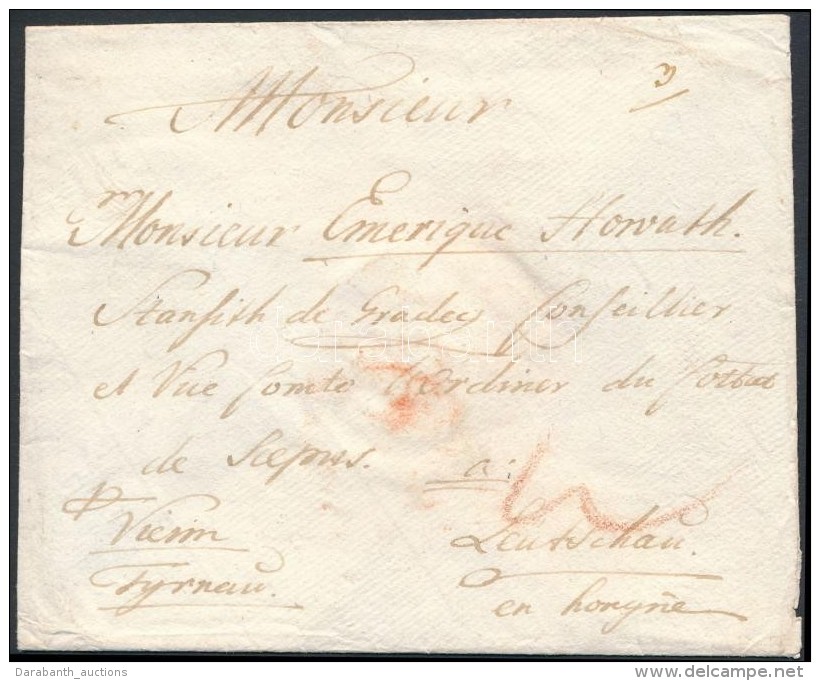 Monsieur
3
Monsieur Emerique Horvath.
Stansith de Gradecz Conseillier
et Vice Comte Ordiner du
de Scepus. a:
Vienn
Leutschau.
Tyrnau.
en hongrie
Darabanth_auctions